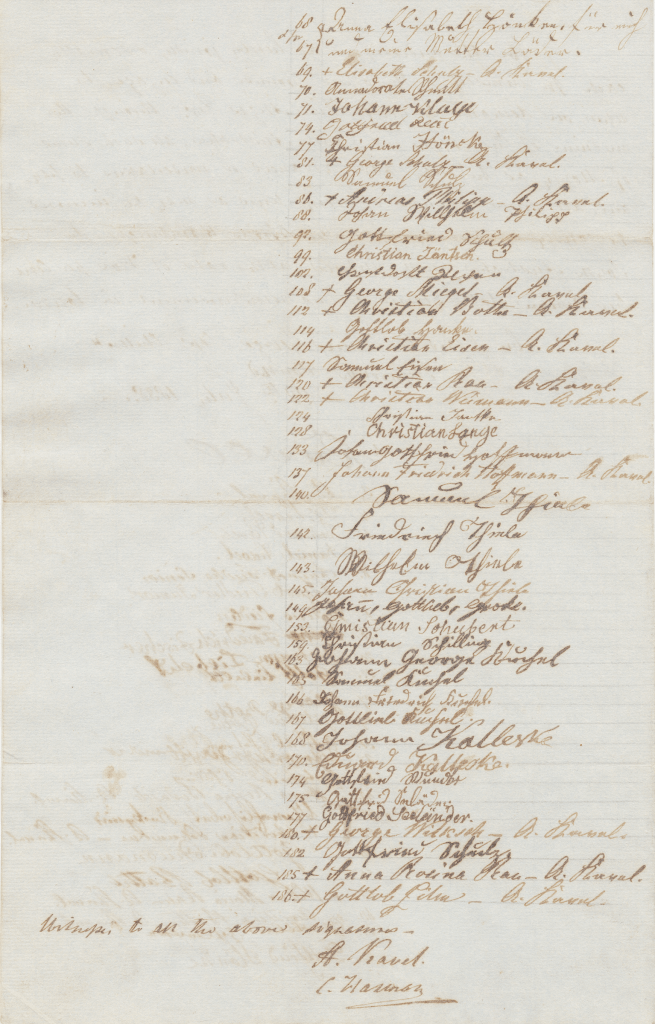 68 Anna Elisabeth Hönken, für mich
67 und meine Mutter
69. + Elisabeth Schulz - A. Kavel.
70. Annadorotea Schultz
71. Johann Klage
74. Gottfried
77 Christian Hönke
81. + George Schulz - A. Kavel.
83 Samuel Schulz
86. + Andreas Philipp - A. Kavel.
88. Johan Willhelm Philipp
92. Gottfried Schultz
99. Christian Jäntsch.
102.
108 + George Mieges - A. Kavel.
112 + Christian Bothe - A. Kavel.
114 Gottlob
116 + Christian Eisen - A. Kavel.
117 Samuel Eisen
120 + Christian Rau - A. Kavel.
122. + Christian Niemann - A. Kavel
124 Christian
128. Christian Lange
133. Johann Gottfried Hoffmann
137 Johann Friedrich Hoffmann - A. Kavel
140. Samuel Thiele
142. Friedrich Thiele
143. Wilhelm Thiele
145. Johann Christian Thiele
149. Johann, Gottlieb, Grote.
153. Christian Schubert
159 Christian Schilling
163 Johann George Kuchel
165 Samuel Kuchel
166 Johann Friedrich Kuchel.
167 Gottlieb Kuchel.
168 Johann Kalleske
170. Eduard Kalleske.
174 Gottfried Wundke
175
177 Gottfried
180. + George Wilksch - A. Kavel.
182 Gottfried Schulz
185 + Anna Rosina Rau - A. Kavel.
186 + Gottlob - A. Kavel.
Witness to all the above signatures -
A. Kavel.